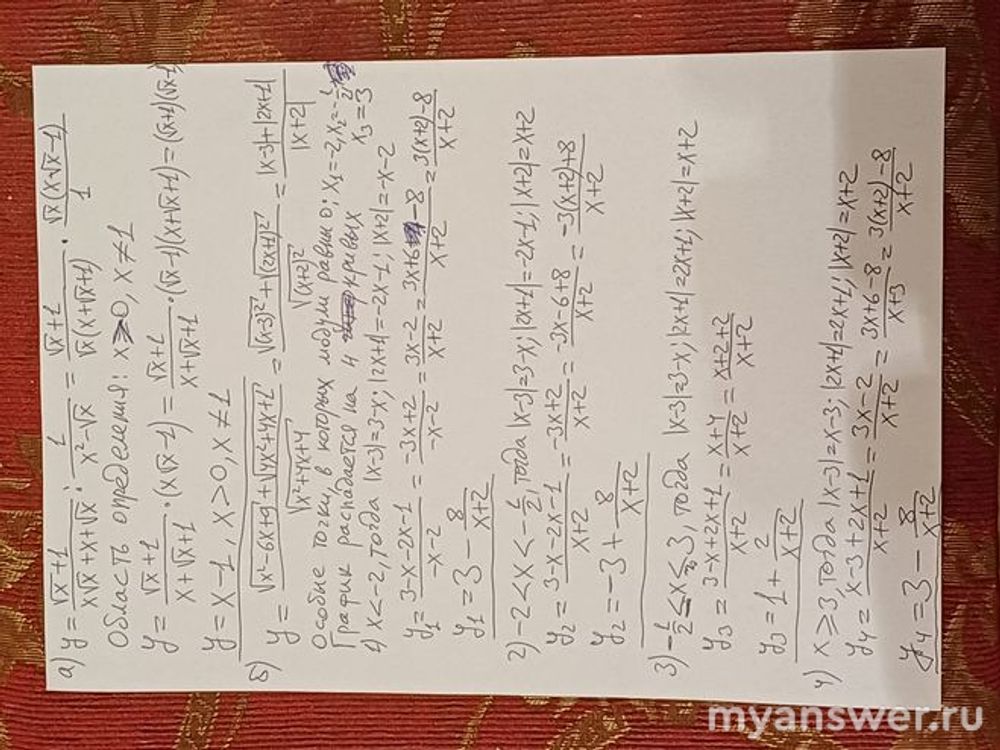 а) y = (√x+1)/(x√x+x+√x) : 1/(x²-√x) = (√x+1)/(√x(x+√x+1)) · √x(x√x-1)/1
Область определения: x>0, x≠1
y = (√x+1)/(x+√x+1) · (x√x-1) = (√x+1)/(x+√x+1) · (√x-1)(x+√x+1) = (√x+1)(√x-1)
y = x-1, x>0, x≠1
б) y = (√(x²-6x+9) + √(4x²+4x+1))/√(x²+4x+4) = (√(x-3)² + √(2x+1)²)/√(x+2)² = (|x-3|+|2x+1|)/|x+2|
Особые точки, в которых модули равны 0: x₁=-2, x₂=-1/2
График распадается на 4 кривых x₃=3
1) x<-2, тогда |x-3|=3-x; |2x+1|=-2x-1; |x+2|=-x-2
y₁ = (3-x-2x-1)/(-x-2) = (-3x+2)/(-x-2) = (3x-2)/(x+2) = (3x+6-8)/(x+2) = (3(x+2)-8)/(x+2)
y₁ = 3 - 8/(x+2)
2) -2<x<-1/2, тогда |x-3|=3-x; |2x+1|=-2x-1; |x+2|=x+2
y₂ = (3-x-2x-1)/(x+2) = (-3x+2)/(x+2) = (-3x-6+8)/(x+2) = (-3(x+2)+8)/(x+2)
y₂ = -3 + 8/(x+2)
3) -1/2≤x≤3, тогда |x-3|=3-x; |2x+1|=2x+1; |x+2|=x+2
y₃ = (3-x+2x+1)/(x+2) = (x+4)/(x+2) = (x+2+2)/(x+2)
y₃ = 1 + 2/(x+2)
4) x≥3, тогда |x-3|=x-3; |2x+1|=2x+1; |x+2|=x+2
y₄ = (x-3+2x+1)/(x+2) = (3x-2)/(x+2) = (3x+6-8)/(x+3) = (3(x+2)-8)/(x+2)
y₄ = 3 - 8/(x+2)
myanswer.ru